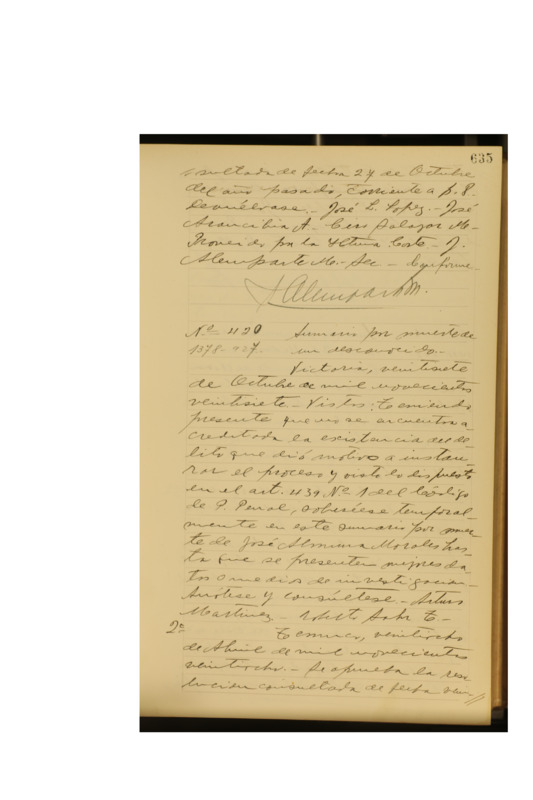 635
sultada de fecha 24 de Octubre
del año pasado, corriente a f. 8.
Devuélvase. - José L. Lopez. - José
Arancibia A. - Ciro Salazar M. -
Proveido por la Iltma Corte - J.
Alemparte M. - Sec - Conforme. -
JAlemparte M.
Nº 420 Sumario por muerte de
1378-927. un desconocido. -
Victoria, veintisiete
de Octubre de mil novecientos
veintisiete. - Vistos: Teniendo
presente que no se encuentra a
creditada la existencia del de
lito que dió motivo a instau
rar el proceso y visto lo dispuesto
en el art. 439 Nº 1 del Código
de P. Penal, sobreséese temporal-
mente en este sumario por muer
te de José Morales has
ta que se presenten mejores da
tos o medios de investigacion -
Anótese y consúltese. - Arturo
Martinez. -
2º Temuco, veintiocho
de Abril de mil novecientos
veintiocho. - Se aprueba la reso
lucion consultada de fecha vein